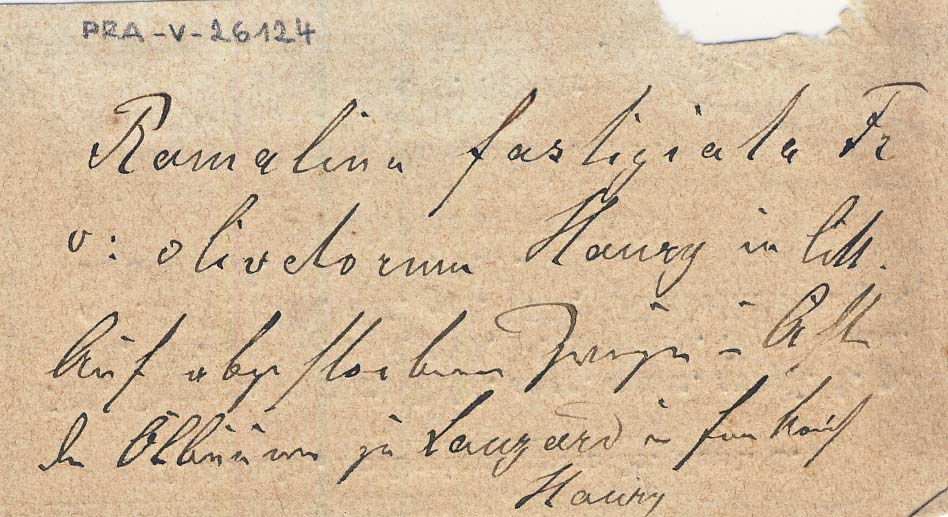 PRA-V-26124
Ramalina fastigiata Fr
v: olivetorum Haury in litt.
Auf abgestorbenen Zweigen
der Ölbäume zu in Frankreich
Haury